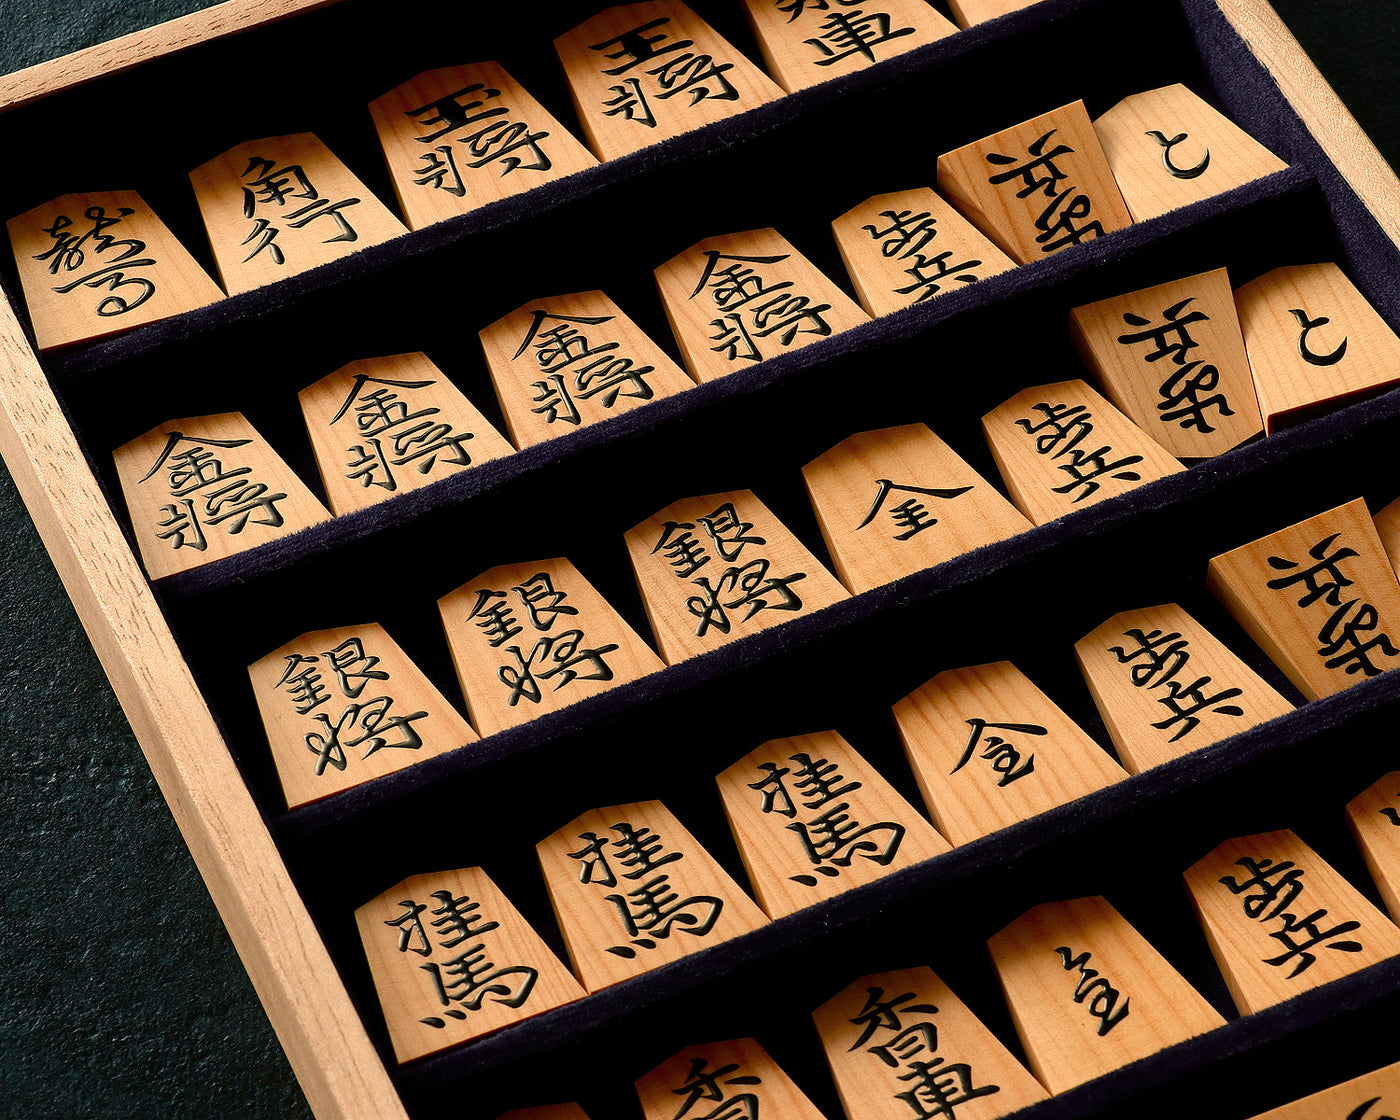 龍馬
角行
玉将
王将
飛車
金将
金将
金将
金将
歩兵
歩兵
と
銀将
銀将
銀将
全
歩兵
歩兵
と
桂馬
桂馬
桂馬
歩兵
歩兵
香
香車
歩兵